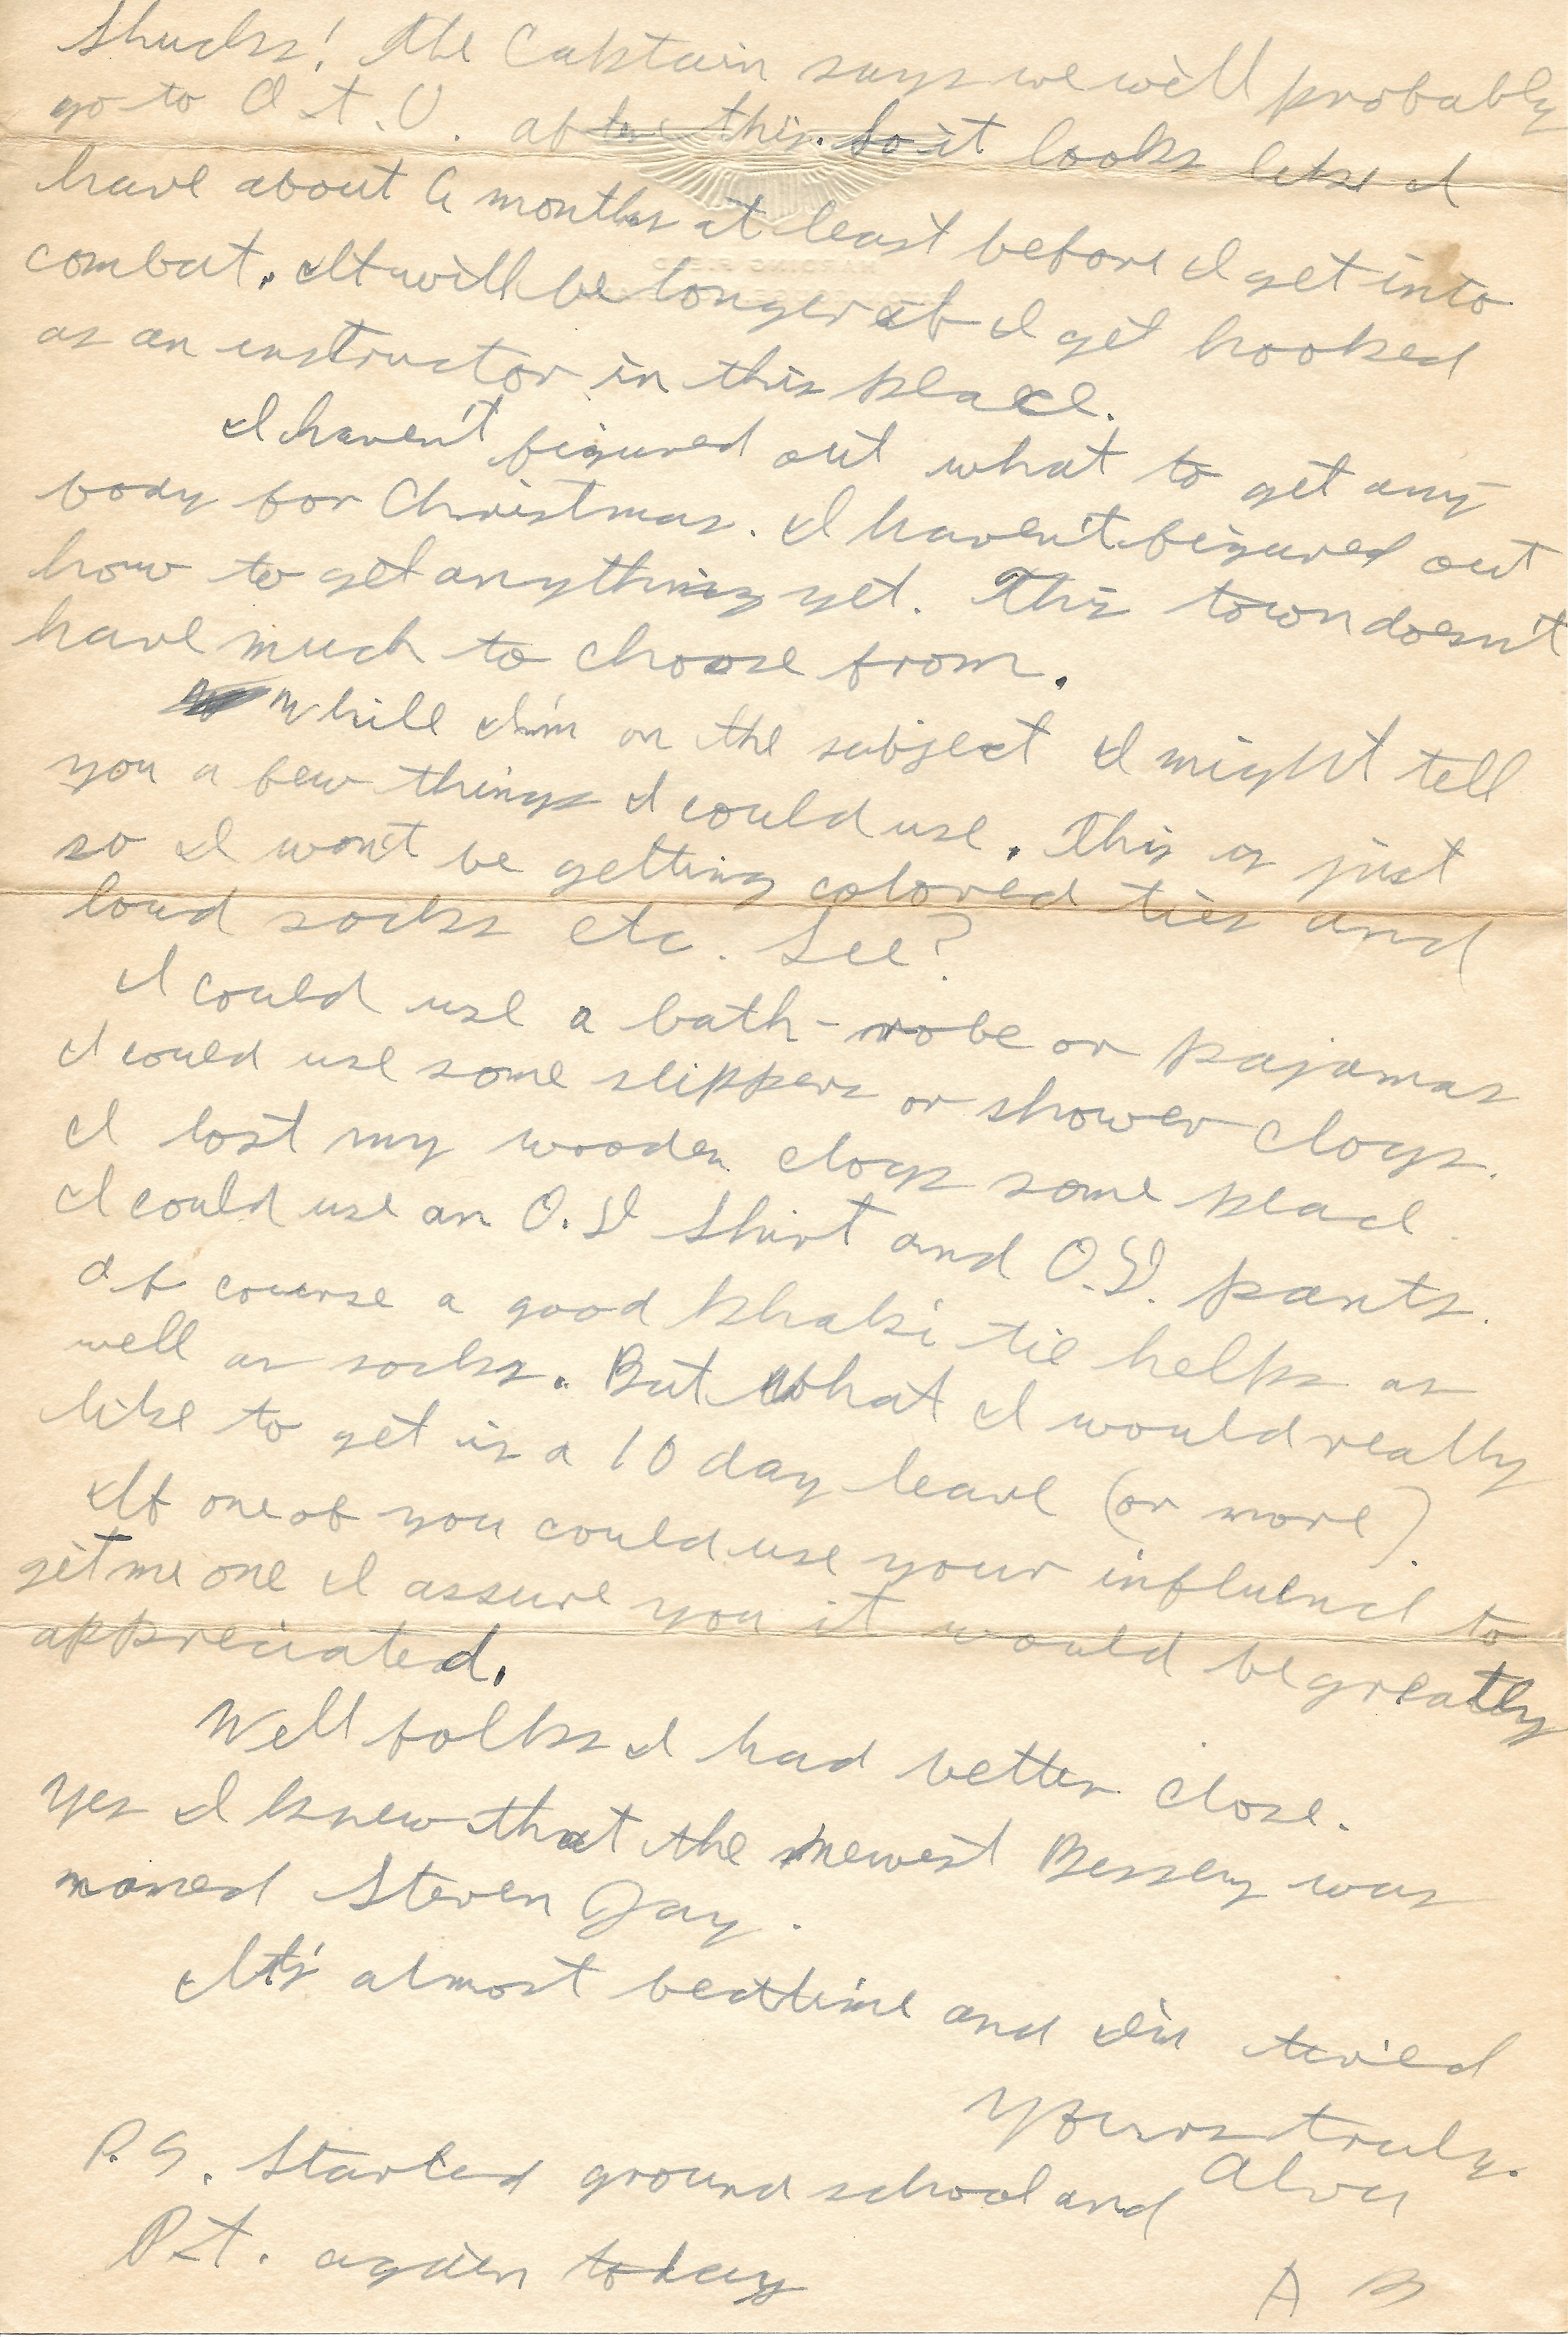 Shucks! The Captain says we will probably
go to O.T.U. after this. So it looks like I
have about 6 months at least before I get into
combat. It will be longer if I get hooked
as an instructor in this place.
I haven't figured out what to get any
body for Christmas. I haven't figured out
how to get anything yet. This town doesn't
have much to choose from.
While I'm on the subject I might tell
you a few things I could use. This is just
so I won't be getting colored ties and
loud socks etc. See?
I could use a bath-robe or pajamas
I could use some slippers or shower clogs.
I lost my wooden clogs some place
I could use an O.D shirt and O.D. pants.
Of course a good khaki tie helps as
well as socks. But what I would really
like to get is a 10 day leave (or more).
If one of you could use your influence to
get me one I assure you it would be greatly
appreciated.
Well folks I had better close.
Yes I knew that the newest Bessey was
named Steven Jay.
It's almost bedtime and I'm tired
Yours truly.
Alva
P.S. Started ground school and
P.T. again today
A B